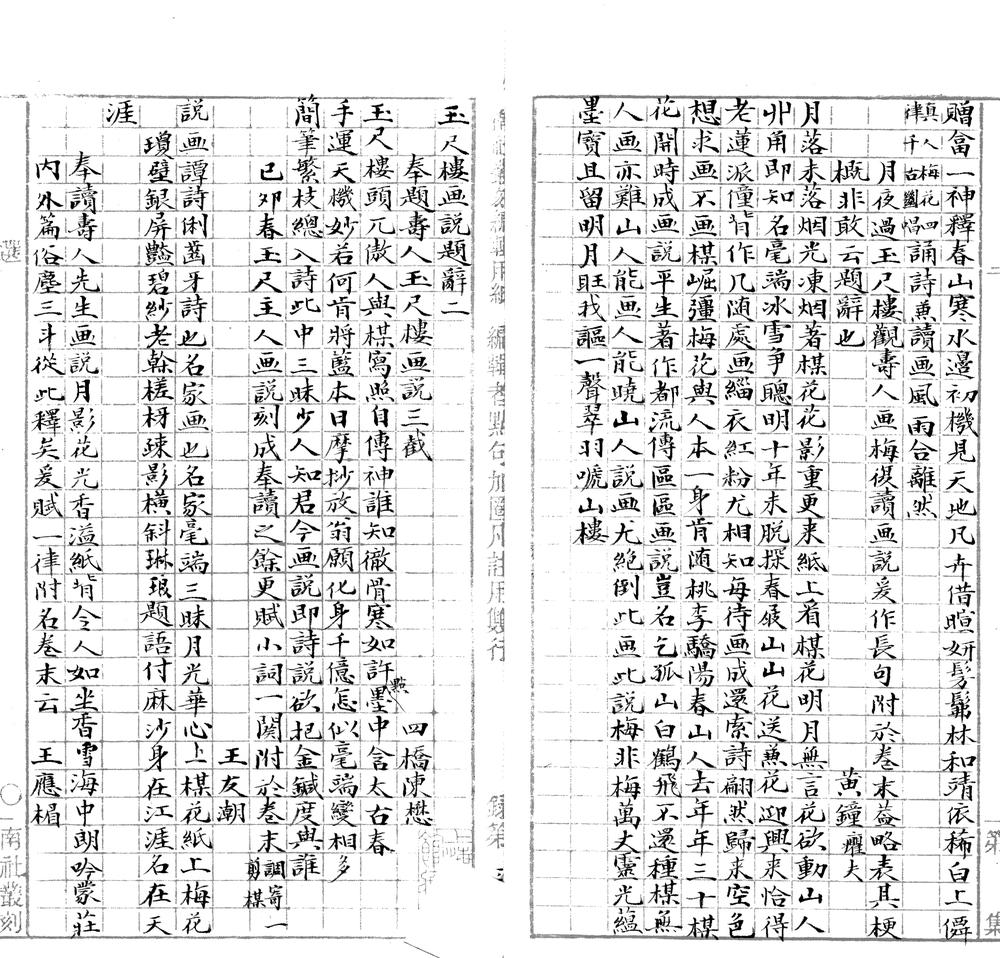 贈畣一神釋春山寒水邊初機見天地凡卉借暄妍髣髴林和靖依稀白上僊
真人梅花四
律千古獨唱
誦詩兼讀画風雨合離然
月夜過玉尺樓觀壽人画梅復讀画説爰作長句附於卷末葢略表其梗
概非敢云題辭也
黃鐘癯夫
月落未落烟光凍烟著楳花花影重更来紙上看楳花明月無言花欲動山人
丱角即知名毫端冰雪争聰明十年未脱探春屐山山花送兼花迎興来恰得
老蓮派僮背作几随處画緇衣紅粉尤相知每待画成還索詩翩然歸来空色
想求画不画楳崛彊梅花與人本一身肯随桃李驕陽春山人去年年三十楳
花開時成画説平生著作都流傳區區画説豈名乞孤山白鶴飛不還種楳無
人画亦難山人能画人能曉山人説画尤絕倒此画此説梅非梅萬丈靈光蘊
墨寶且留明月旺我謳一聲翠羽嗁山樓
玉尺樓画説題辭二
奉題壽人玉尺樓画説三截
四橋陳懋
玉尺樓頭兀傲人與楳寫照自傳神誰知徹骨寒如許墨點中含太古春
手運天機妙若何肯將藍本日摩抄放翁願化身千億怎似毫端變相多
簡筆繁枝總入詩此中三昧少人知君今画説即詩説欲把金鍼度與誰
己卯春玉尺主人画説刻成奉讀之餘更賦小詞一闋附於卷末調寄一
剪楳
王友朝
説画譚詩俐齒牙詩也名家画也名家毫端三昧月光華心上楳花紙上梅花
瓊璧銀屏豔碧紗老榦槎枒疎影横斜琳琅題語付麻沙身在江涯名在天
涯
奉讀壽人先生画説月影花光香溢紙背令人如坐香雪海中朗吟蒙莊
内外篇俗塵三斗從此釋矣爰賦一律附名卷末云
王應楣
選
南社叢刻
第
集
編輯者點句加圈凡註用雙行